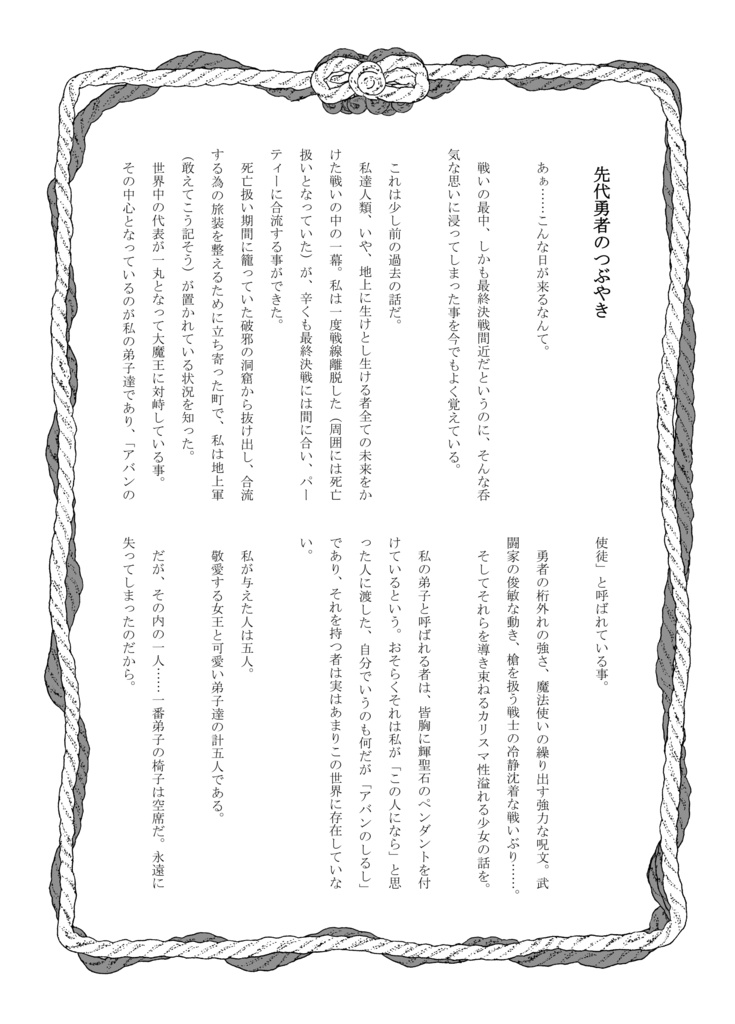 先代勇者のつぶやき
あぁ……こんな日が来るなんて。
戦いの最中、しかも最終決戦間近だというのに、そんな呑
気な思いに浸ってしまった事を今でもよく覚えている。
これは少し前の過去の話だ。
私達人類、いや、地上に生けとし生ける者全ての未来をか
けた戦いの中の一幕。私は一度戦線離脱した（周囲には死亡
扱いとなっていた）が、辛くも最終決戦には間に合い、パー
ティーに合流する事ができた。
死亡扱い期間に籠っていた破邪の洞窟から抜け出し、合流
する為の旅装を整えるために立ち寄った町で、私は地上軍
（敢えてこう記そう）が置かれている状況を知った。
世界中の代表が一丸となって大魔王に対峙している事。
その中心となっているのが私の弟子達であり、「アバンの
使徒」と呼ばれている事。
勇者の桁外れの強さ、魔法使いの繰り出す強力な呪文。武
闘家の俊敏な動き、槍を扱う戦士の冷静沈着な戦いぶり……。
そしてそれらを導き束ねるカリスマ性溢れる少女の話を。
私の弟子と呼ばれる者は、皆胸に輝聖石のペンダントを付
けているという。おそらくそれは私が「この人になら」と思
った人に渡した、自分でいうのも何だが「アバンのしるし」
であり、それを持つ者は実はあまりこの世界に存在していな
い。
私が与えた人は五人。
敬愛する女王と可愛い弟子達の計五人である。
だが、その内の一人……一番弟子の椅子は空席だ。永遠に
失ってしまったのだから。